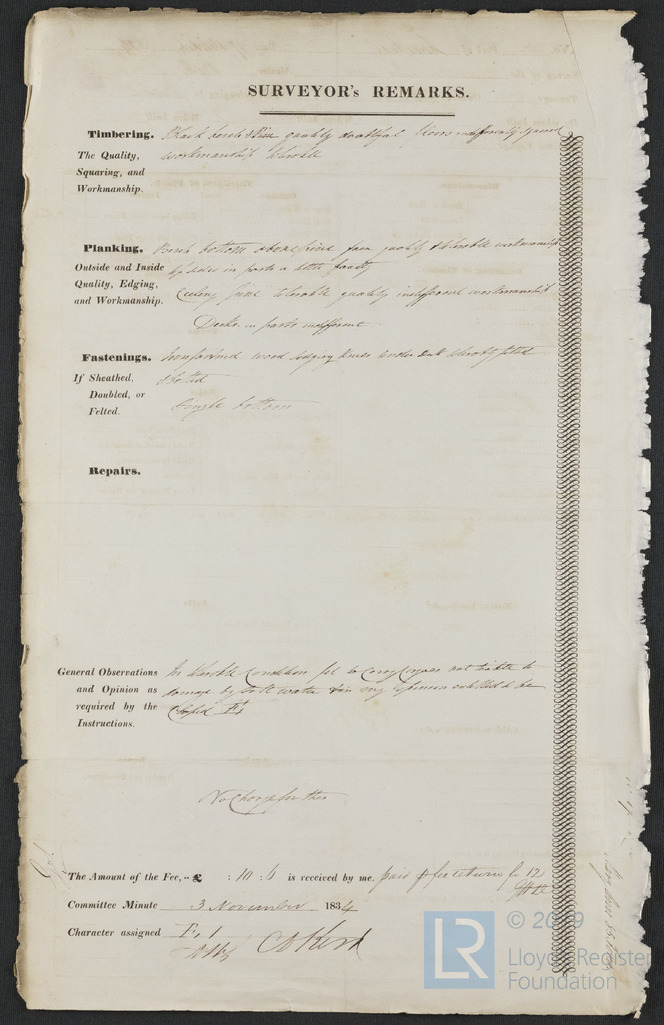 SURVEYOR's REMARKS.
Timbering. Black birch & Pine quality doubtful indifferently squared
The Quality, workmanship tolerable
Squaring, and
Workmanship.
Planking. Birch bottom above pine quality & tolerable workmanship
Outside and Inside top sides in parts a little faulty
Quality, Edging, Ceiling pine tolerable quality indifferent workmanship
and Workmanship.
Decks in parts indifferent
Fastenings. Iron wood knees under deck fitted
If Sheathed, & bolted
Doubled, or Single bottom
Felted.
Repairs.
General Observations In tolerable Condition fit to Carry Cargoes not liable to
and Opinion as damage by salt water & in my opinion entitled to be
required by the Classed
Instructions.
No Charge for this
The Amount of the Fee, .. £ : 10 : 6 is received by me. paid
Committee Minute 3 November 1834
Character assigned
© 2019
LR
Lloyd's Register
Foundation